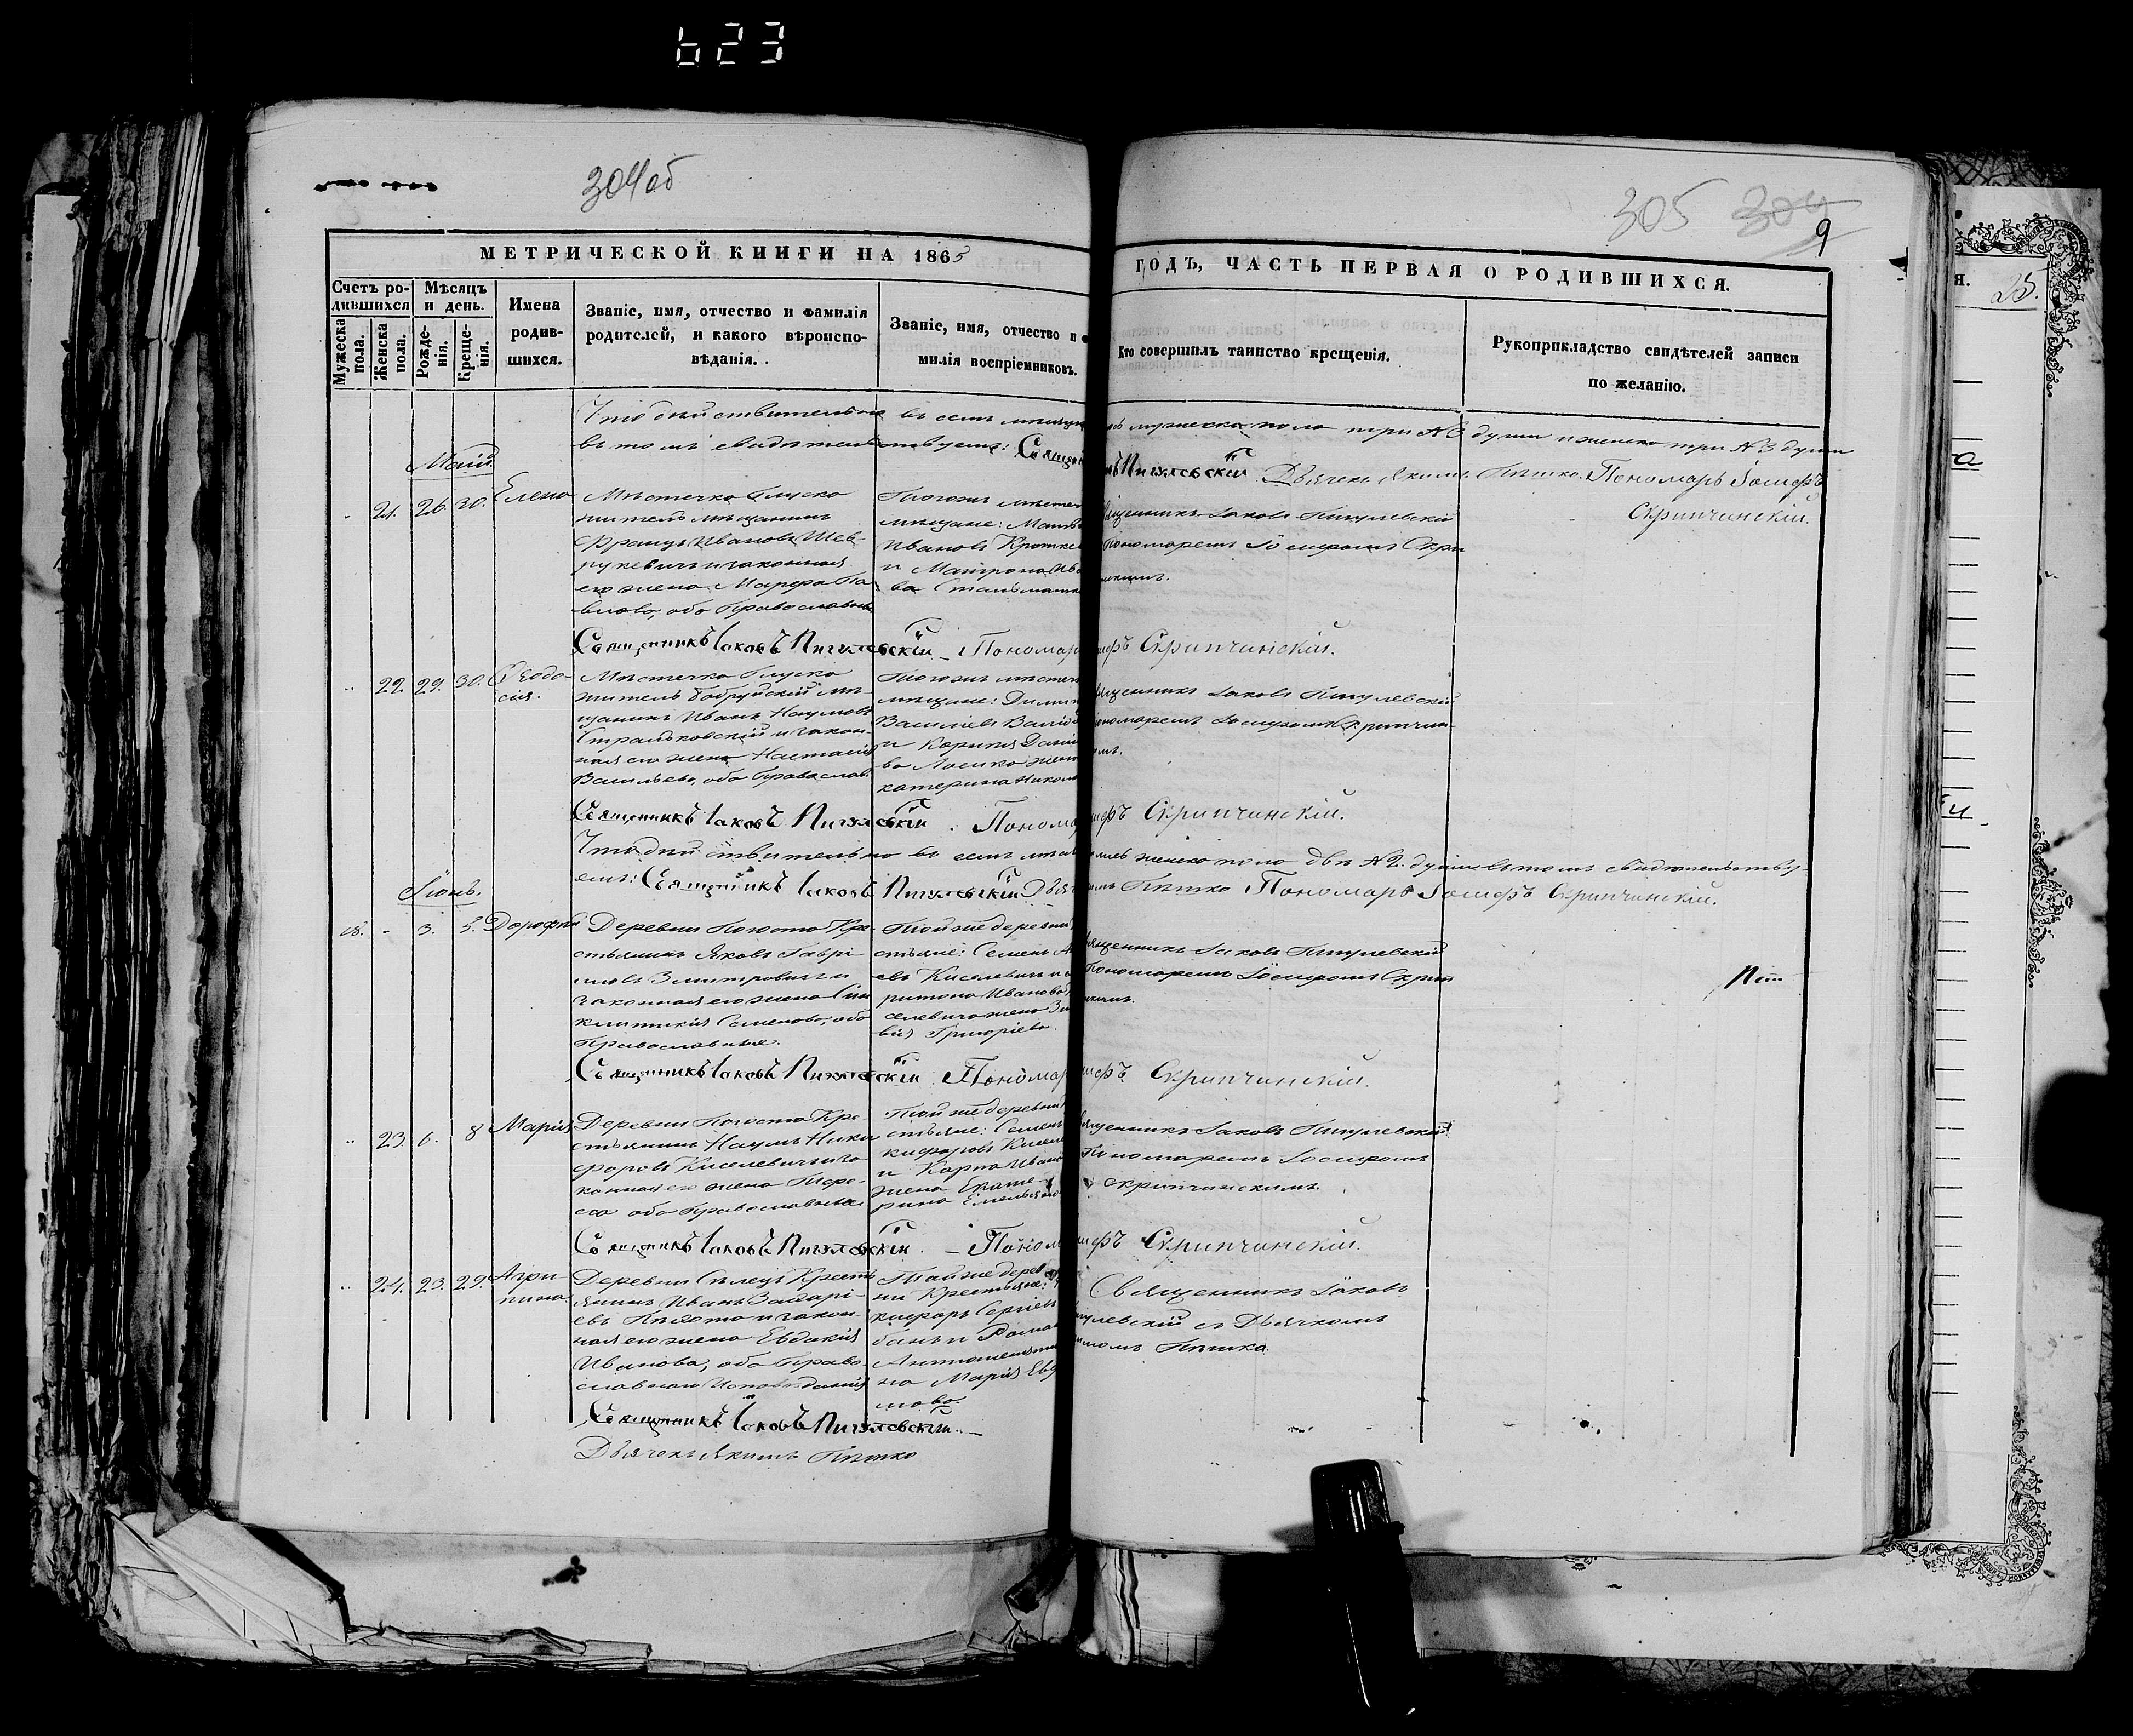 623
304об
305 304
9
МЕТРИЧЕСКОЙ КНИГИ НА 1865
ГОДЪ, ЧАСТЬ ПЕРВАЯ О РОДИВШИХСЯ.
Счетъ ро-
дившихся
Мужеска
пола.
Женска
пола.
Мѣсяцъ
и день.
Рожде-
нія.
Креще-
нія.
Имена
родив-
шихся.
Званіе, имя, отчество и фамилія
родителей, и какого вѣроиспо-
вѣданія.
Званіе, имя, отчество и ф
милія воспріемниковъ.
Кто совершилъ таинство крещенія.
Рукоприкладство свидѣтелей записи
по желанію.
Я. 25.
Что дѣйствительно въ семъ мѣсяцѣ мужеска пола три №3 души и женска три №3 души
въ томъ свидѣтельствуемъ: Священникъ Пигулевскій Дьячекъ Якимъ Пѣтко. Пономарь Іосифъ
Скрипчинскій.
Май
21. 26. 30. Елена
Мѣстечка Глуска
житель мѣщанинъ
Францъ Ивановъ Шев-
рукевичъ и законная
его жена Марфа Па-
влова, оба Православные
Тогожъ мѣстеч
мѣщане: Матв
Ивановъ Кротке
и Матрона Ива
ва
Священникъ Іаковъ Пигулевскій
Пономаремъ Іосифомъ Скри
Священникъ Іаковъ Пигулевскій – Пономарь Іосифъ Скрипчинскій.
22. 29. 30. Ѳеодо-
сія.
Мѣстечка Глуска
житель Бобруйскій мѣ-
щанинъ Иванъ Наумовъ
Стральковскій и закон-
ная его жена Настасія
Васильева, оба Правосл.
Тогожъ мѣстеч
мѣщане:
Василіевъ
и
ва жен
катерина Никол
Священникъ Іаковъ Пигулевскій
Пономаремъ Іосифомъ Скрипчин
Священникъ Іаковъ Пигулевскій. Пономарь Іосифъ Скрипчинскій.
Что дѣйствительно въ семъ мѣсяцѣ женска пола двѣ №2. души въ томъ свидѣтельству-
емъ: Священникъ Іаковъ Пигулевскій Дьячекъ Якимъ Пѣтко Пономарь Іосифъ Скрипчинскій.
Іюнь.
18. - 3. 5. Дорофей
Деревни Погоста Кре-
стьянинъ Яковъ Гаврі-
иловъ Змитровичъ и
законная его жена Син-
клитикія Семенова, оба
Православные.
Той же деревни
стьяне: Семенъ
евъ Киселевичъ и
ритона Иванова
селевича жена Зи
вія Григоріева.
Священникъ Іаковъ Пигулевскій
Пономаремъ Іосифомъ Скрип
Священникъ Іаковъ Пигулевскій. Пономарь Іосифъ Скрипчинскій.
23. 6. 8 Марія
Деревни Погоста Кре-
стьянинъ Наумъ Ники-
форовъ Киселевичъ и за-
конная его жена Тере-
са оба Православные
Той же деревни
стьяне: Семенъ
кифоровъ Кисел
и Карпа Ивано
жена Екате-
рина Емельяно
Священникъ Іаковъ Пигулевскій
Пономаремъ Іосифомъ
Скрипчинскимъ.
Священникъ Іаковъ Пигулевскій. – Пономарь Іосифъ Скрипчинскій.
24. 23. 29. Агри-
пина.
Деревни Сѣлецъ Кресть-
янинъ Иванъ Захарі-
евъ и закон-
ная его жена Евдокія
Иванова, оба Право-
славнаго Исповѣданія
Той же дерев
ни Крестьяне:
кифоръ Сергіевъ
банъ и Роман
на Марія Евд
мова.
Священникъ Іаковъ
Пигулевскій съ Дьячкомъ
Якимомъ Пѣтко.
Священникъ Іаковъ Пигулевскій. –
Дьячекъ Якимъ Пѣтко